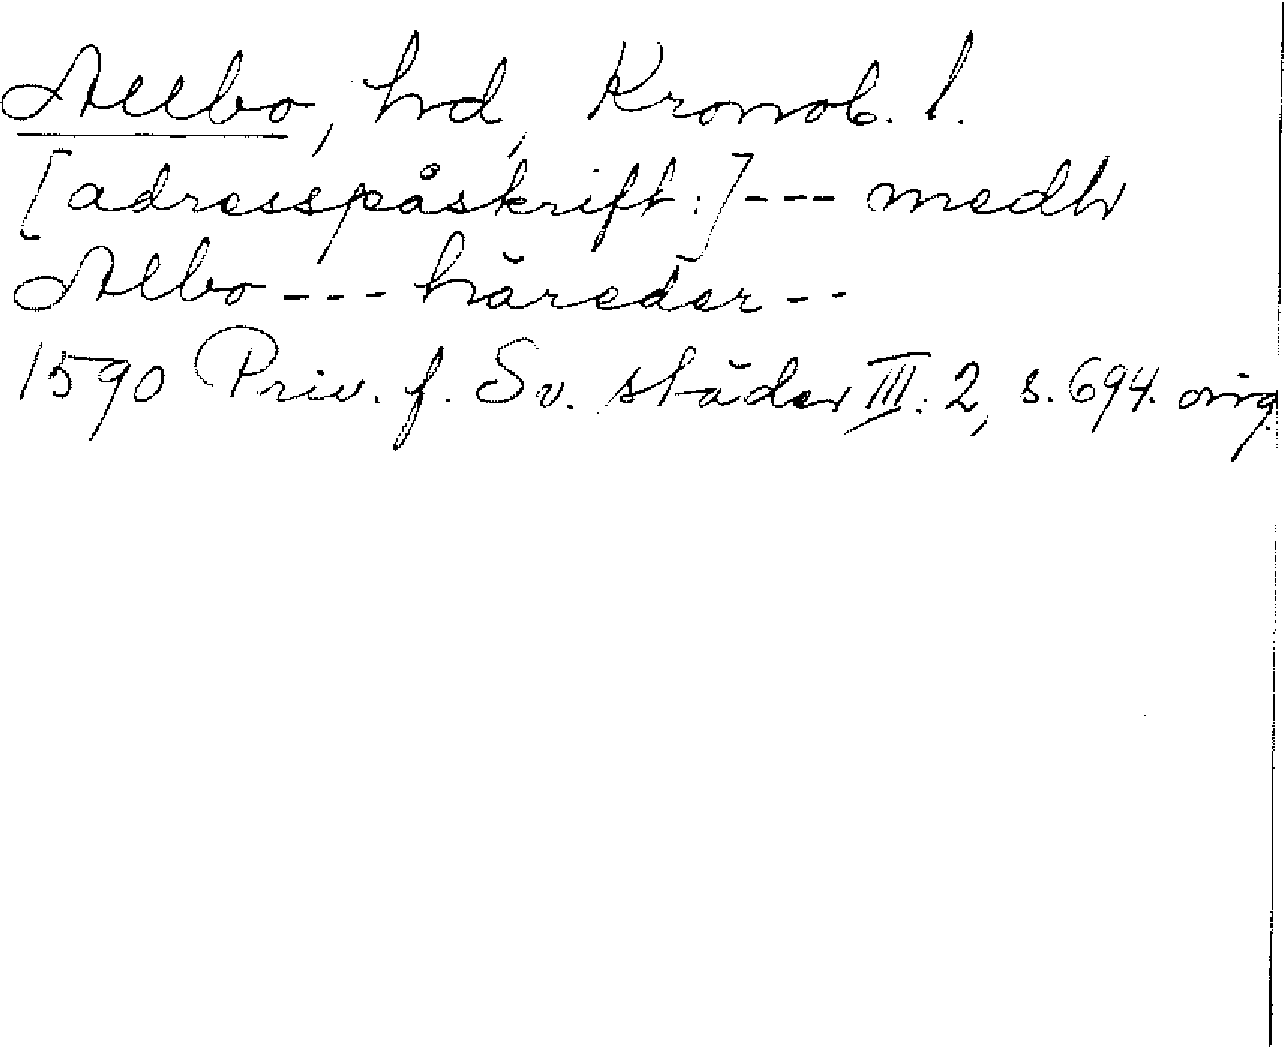 Allbo, hd, Kronob. l.
[adresspåskrift:] --- medh
Albo --- häreder --
1590 Priv. f. Sv. städer III. 2, s. 694. orig.